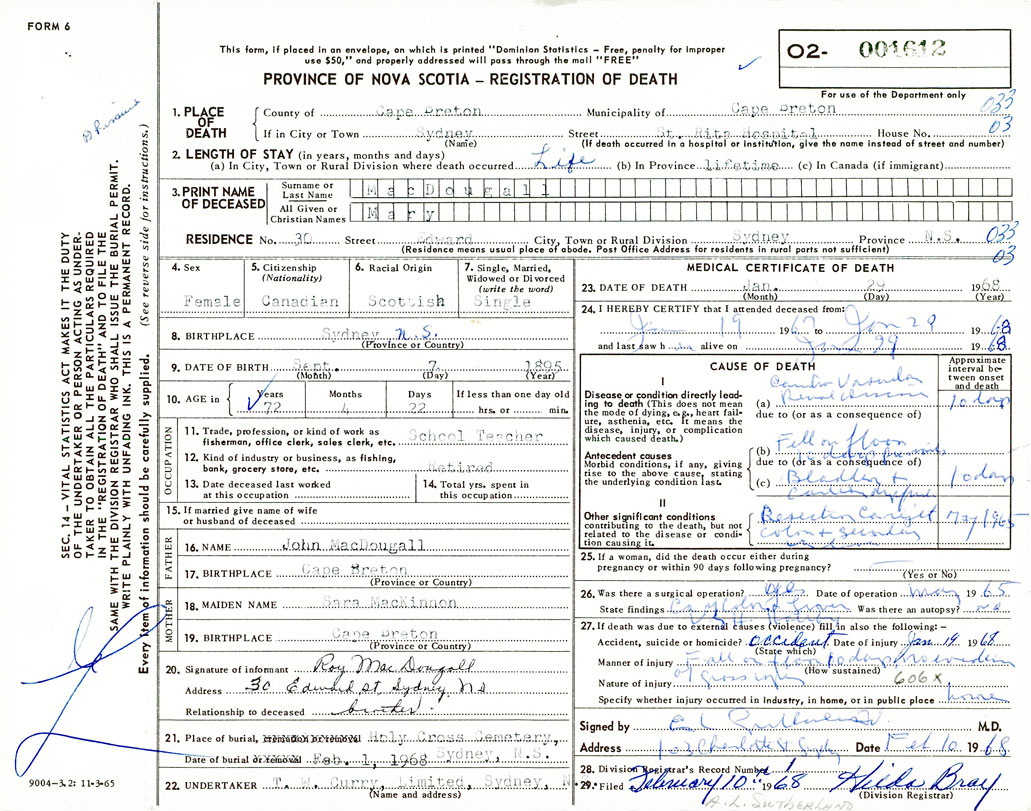 FORM 6
This form, if placed in an envelope, on which is printed "Dominion Statistics – Free, penalty for improper
use $50," and properly addressed will pass through the mail "FREE"
PROVINCE OF NOVA SCOTIA – REGISTRATION OF DEATH
O2- 001612
For use of the Department only
SEC. 14 – VITAL STATISTICS ACT MAKES IT THE DUTY
OF THE UNDERTAKER OR PERSON ACTING AS UNDER-
TAKER TO OBTAIN ALL THE PARTICULARS REQUIRED
IN THE "REGISTRATION OF DEATH" AND TO FILE THE
SAME WITH THE DIVISION REGISTRAR WHO SHALL ISSUE THE BURIAL PERMIT.
WRITE PLAINLY WITH UNFADING INK. THIS IS A PERMANENT RECORD.
Every item of information should be carefully supplied. (See reverse side for instructions.)
1. PLACE OF DEATH
County of Cape Breton Municipality of Cape Breton 033
If in City or Town Sydney Street St. Rita Hospital House No. 03
(Name) (If death occurred in a hospital or institution, give the name instead of street and number)
2. LENGTH OF STAY (in years, months and days)
(a) In City, Town or Rural Division where death occurred Life (b) In Province lifetime (c) In Canada (if immigrant)
3. PRINT NAME OF DECEASED
Surname or Last Name MacDougall
All Given or Christian Names Mary
RESIDENCE No. 30 Street Edward City, Town or Rural Division Sydney Province N.S. 033
(Residence means usual place of abode. Post Office Address for residents in rural parts not sufficient) 03
4. Sex
Female
5. Citizenship (Nationality)
Canadian
6. Racial Origin
Scottish
7. Single, Married, Widowed or Divorced (write the word)
Single
8. BIRTHPLACE Sydney N.S.
(Province or Country)
9. DATE OF BIRTH Sept. 7 1895
(Month) (Day) (Year)
10. AGE in Years 72 Months 4 Days 22 If less than one day old hrs. or min.
OCCUPATION
11. Trade, profession, or kind of work as fisherman, office clerk, sales clerk, etc. School Teacher
12. Kind of industry or business, as fishing, bank, grocery store, etc. Retired
13. Date deceased last worked at this occupation
14. Total yrs. spent in this occupation
15. If married give name of wife or husband of deceased
FATHER
16. NAME John MacDougall
17. BIRTHPLACE Cape Breton
(Province or Country)
MOTHER
18. MAIDEN NAME Sara MacKinnon
19. BIRTHPLACE Cape Breton
(Province or Country)
20. Signature of informant Roy MacDougall
Address 30 Edward St Sydney NS
Relationship to deceased brother
21. Place of burial, cremation or removal Holy Cross Cemetery,
Date of burial or removal Feb. 1, 1968 Sydney, N.S.
22. UNDERTAKER T. W. Curry, Limited, Sydney, N
(Name and address)
9004–3.2: 11-3-65
MEDICAL CERTIFICATE OF DEATH
23. DATE OF DEATH Jan. 29 1968
(Month) (Day) (Year)
24. I HEREBY CERTIFY that I attended deceased from:
Jan 19 1967 to Jan 29 1968
and last saw h alive on Jan 29 1968
CAUSE OF DEATH
Approximate interval between onset and death
I
Disease or condition directly leading to death (This does not mean the mode of dying, e.g., heart failure, asthenia, etc. It means the disease, injury, or complication which caused death.)
(a) Cardio Vascular 10 days
due to (or as a consequence of)
Antecedent causes
Morbid conditions, if any, giving rise to the above cause, stating the underlying condition last.
(b) Fell on floor
10 days
due to (or as a consequence of)
(c) Bladder + 10 days
II
Other significant conditions contributing to the death, but not related to the disease or condition causing it.
Resection Ca right May 1965
Colon + Secondary
25. If a woman, did the death occur either during pregnancy or within 90 days following pregnancy?
(Yes or No)
26. Was there a surgical operation? yes Date of operation May 1965
State findings Ca of Colon + Liver Was there an autopsy? no
27. If death was due to external causes (violence) fill in also the following:–
Accident, suicide or homicide? accident Date of injury Jan. 19 1968
(State which)
Manner of injury Fall on floor 10 days no evidence
(How sustained)
Nature of injury of gross injury 606X
Specify whether injury occurred in industry, in home, or in public place home
Signed by M.D.
Address Charlotte St Date Feb 10 1968
28. Division Registrar's Record Number
29. Filed February 10th 1968 Hilda Bray
(Division Registrar)
A. L. SUTHERLAND